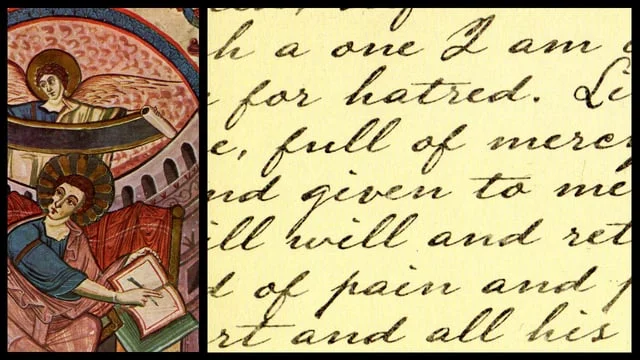 h a one I am
for hatred. Li
e, full of mercy
nd given to me
ill will and ret
d of pain and
rt and all his